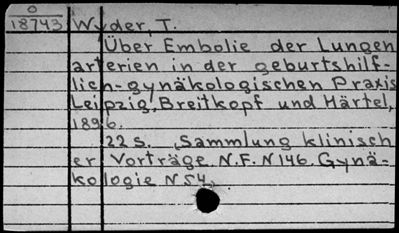 0
18743 Wyder, T.
Über Embolie der Lungen
arterien in der geburtshilf-
lich-gynäkologischen Praxis
Leipzig, Breitkopf und Härtel,
1896.
22 S. „Sammlung klinisch
er Vorträge N.F. N 146. Gynä-
kologie N 54„